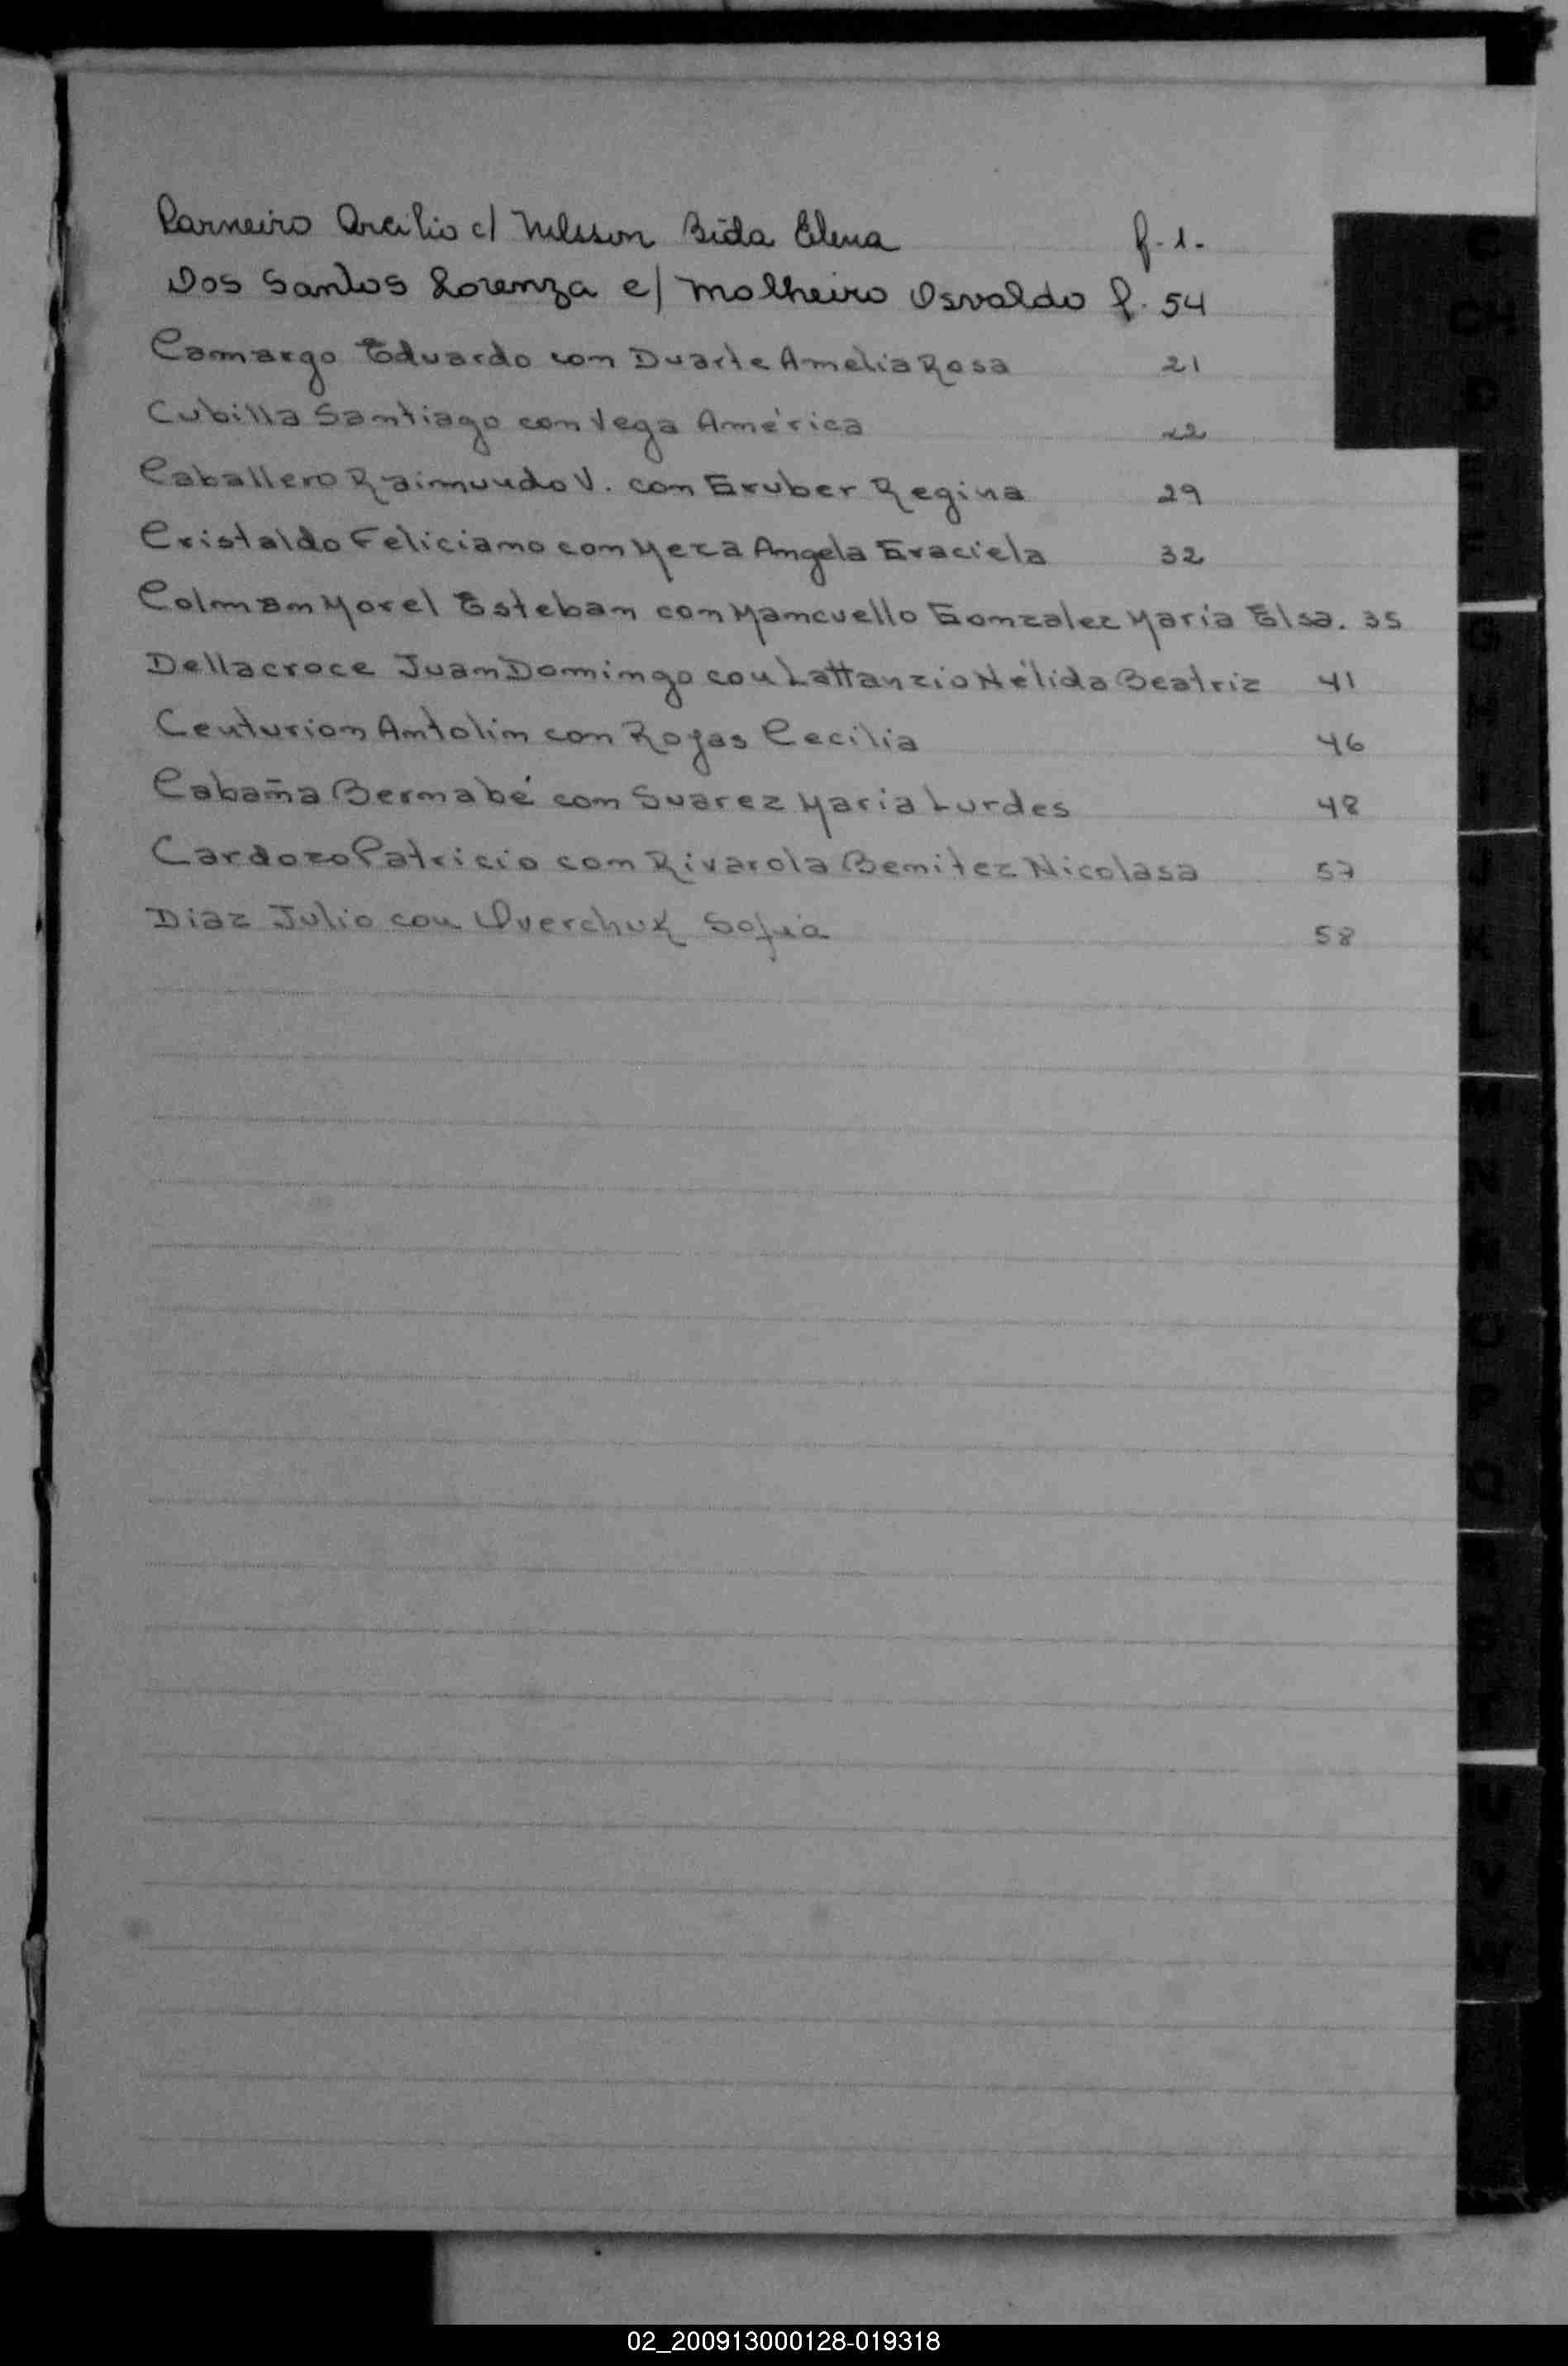 Carneiro Arcilio c/ Nelsson Bida Elena f. 1.
Dos Santos Lorenza c/ Malheiro Osvaldo f. 54
Camargo Eduardo con Duarte Amelia Rosa 21
Cubilla Santiago con Vega América 22
Caballero Raimundo V. con Gruber Regina 29
Cristaldo Feliciano con Meza Angela Graciela 32
Colman Morel Esteban con Mancuello Gonzalez Maria Elsa. 35
Dellacroce Juan Domingo con Lattanzio Nélida Beatriz 41
Centurion Antolin con Rojas Cecilia 46
Cabaña Bernabé con Suarez Maria Lurdes 48
Cardozo Patricio con Rivarola Benitez Nicolasa 57
Diaz Julio con Overchuk Sofia 58
C
CH
D
E
F
G
H
I
J
K
L
M
N
Ñ
O
P
Q
R
S
T
U
V
W
02_200913000128-019318